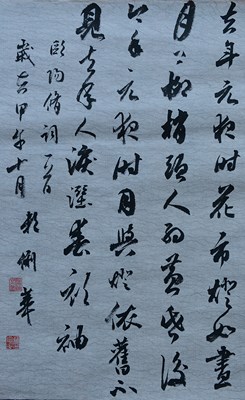 去年元夜时花市燈如晝
月上柳梢頭人約黃昏後
今年元夜时月與燈依舊不
見去年人淚濕春衫袖
歐陽脩詞一首
歲在甲午十月 俐華